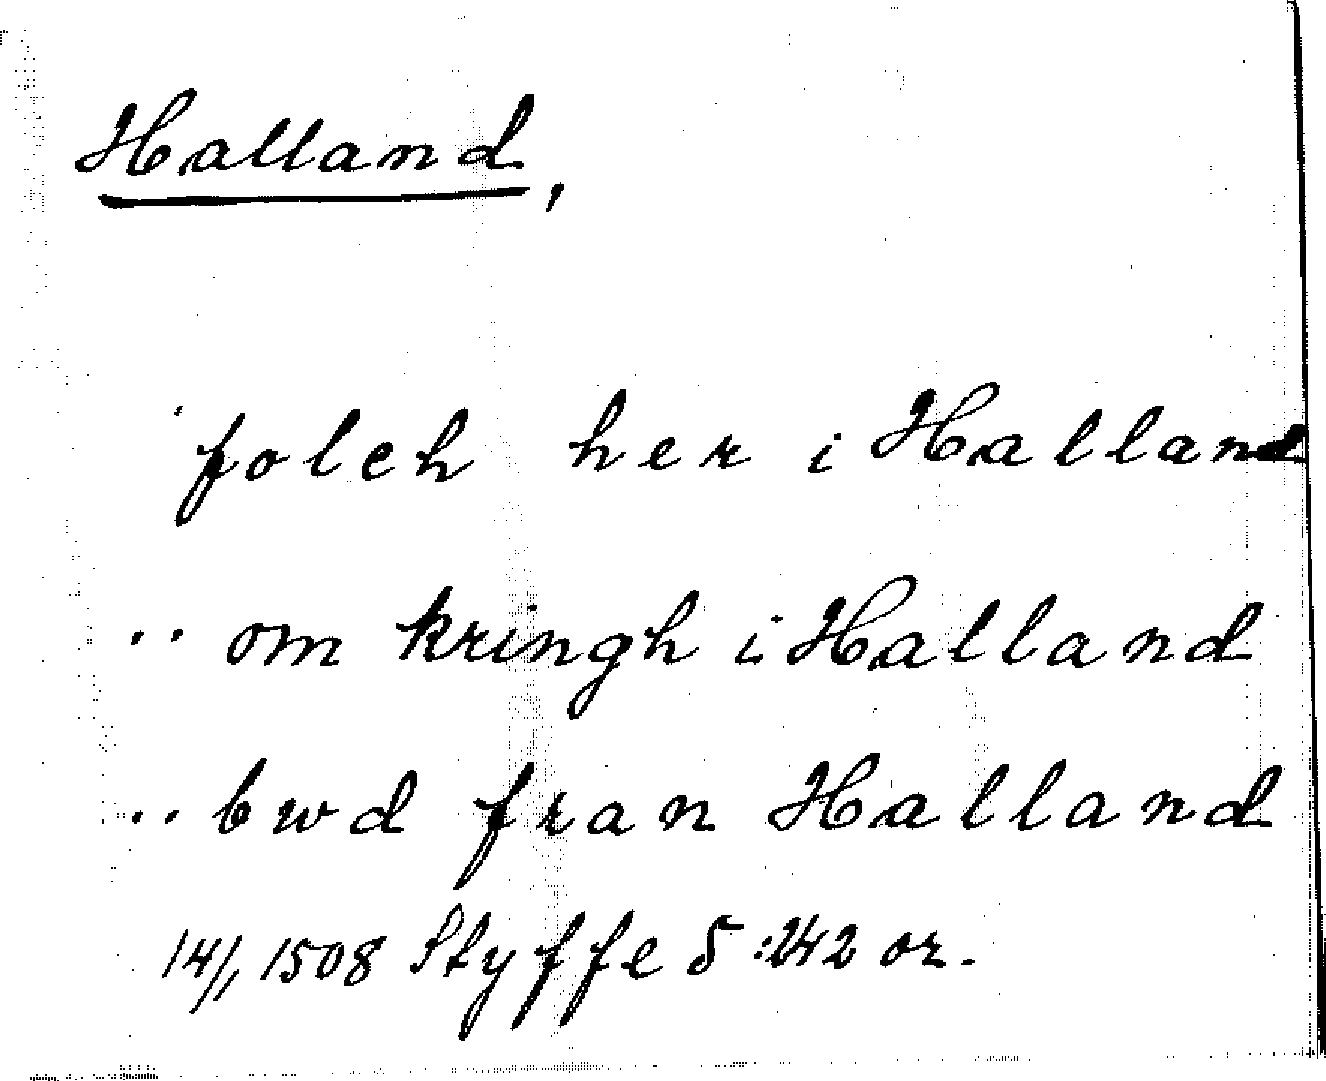 Halland,
folch her i Halland
.. om kringh i Halland
.. bwd fran Halland
14/1 1508 Styffe 5:242 or.